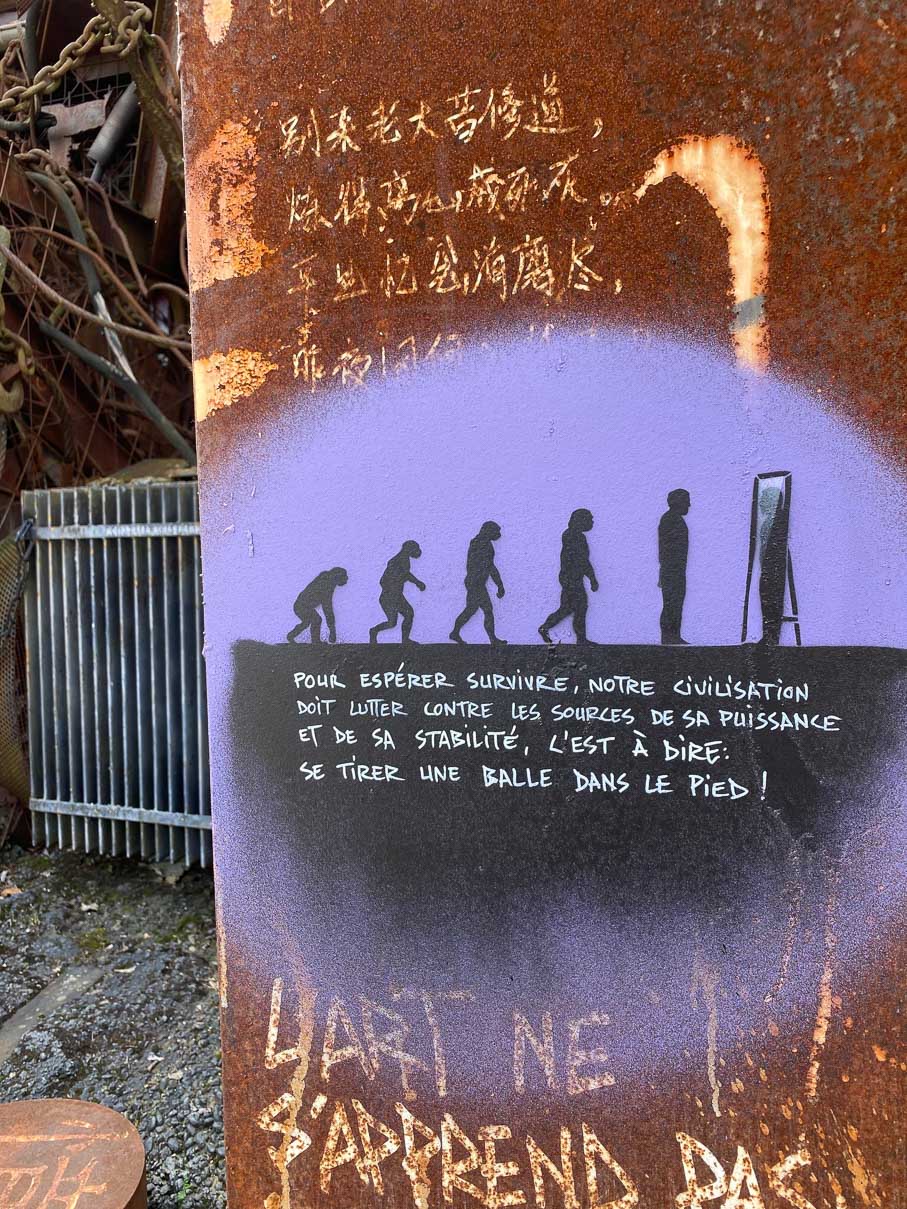 别来老大苦修道，
炼得离心成死灰。
平生忆念消磨尽，
昨夜因何
POUR ESPÉRER SURVIVRE, NOTRE CIVILISATION
DOIT LUTTER CONTRE LES SOURCES DE SA PUISSANCE
ET DE SA STABILITÉ, C'EST À DIRE:
SE TIRER UNE BALLE DANS LE PIED !
L'ART NE
S'APPREND PAS